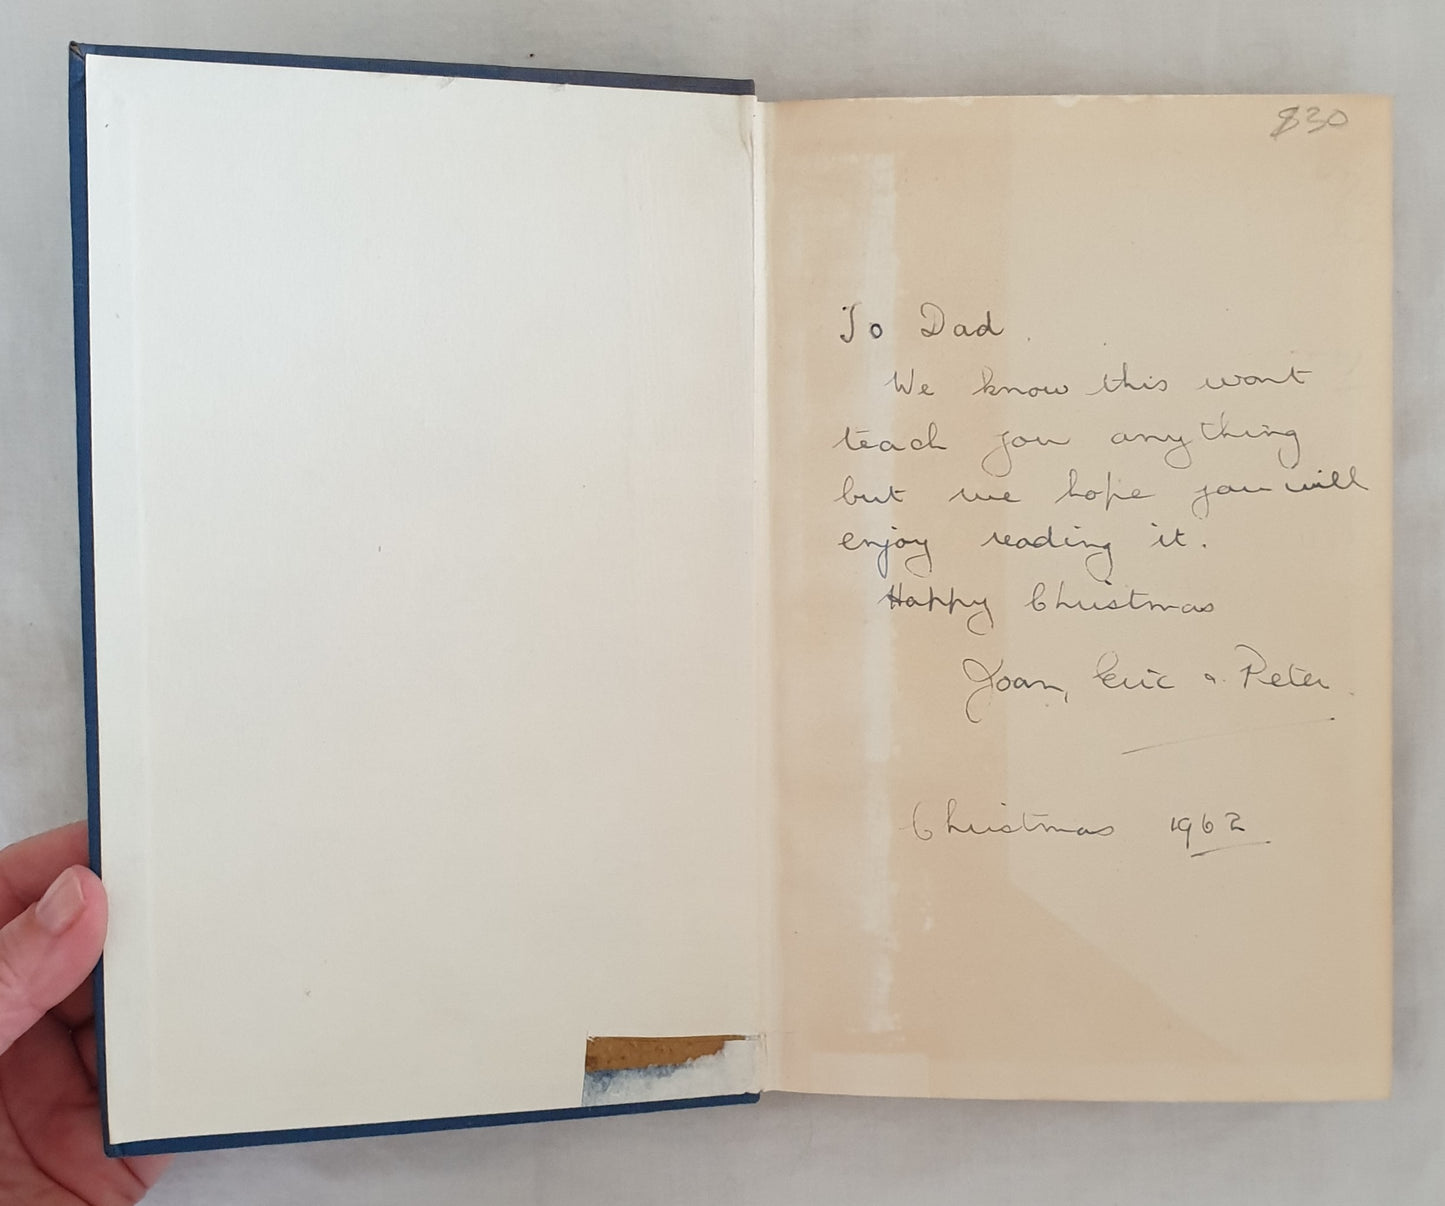 $30
To Dad.
We know this wont
teach you anything
but we hope you will
enjoy reading it.
Happy Christmas
Joan, Eric & Peter.
Christmas 1962